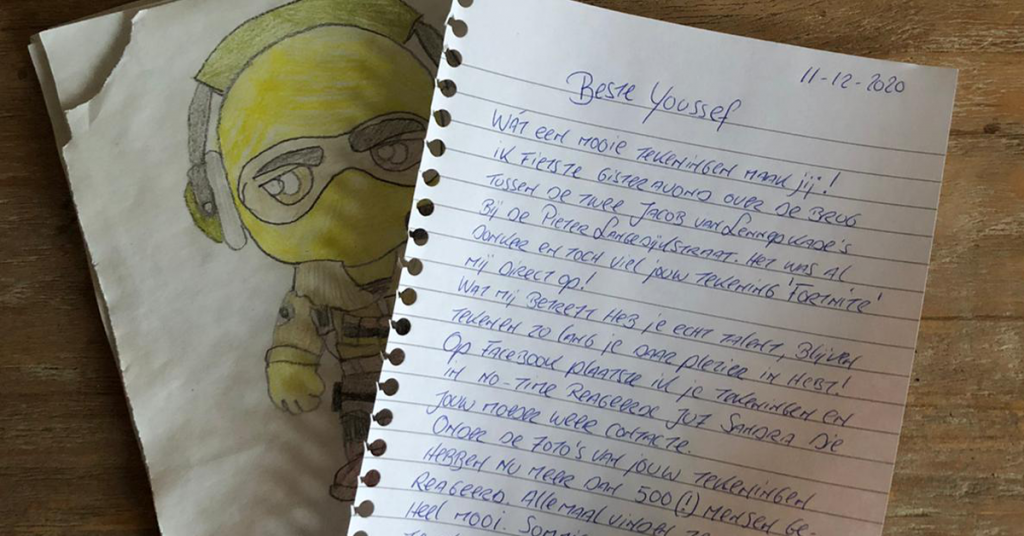 11-12-2020
Beste Youssef
Wat een mooie tekeningen maak jij!
ik fietste gisteravond over de brug
tussen de twee Jacob van Lennepkade's
bij de Pieter Langedijkstraat. Het was al
donker en toch viel jouw tekening 'Fortnite'
mij direct op!
Wat mij betreft heb je echt talent, blijven
tekenen zo lang je daar plezier in hebt!
Op Facebook plaatste ik je tekeningen en
in no-time reageerde juf Sandra die
jouw moeder weer contacte.
Onder de foto's van jouw tekeningen
hebben nu meer dan 500 (!) mensen ge-
reageerd. Allemaal vinden
heel mooi.